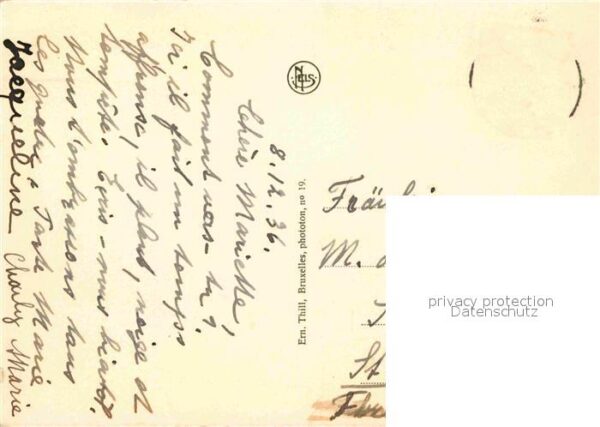 8.12.36.
Chère Mariette,
Comment vas-tu?
Ici il fait un temps
affreux, il pleut, neige et
tempête. Ecris-nous bientôt.
Nous t'embrassons tous
les quatre, Tante Marie
Jacqueline Charly Marie
NELS
Ern. Thill, Bruxelles, phototon, nº 19.
Fräulein
M.
St
privacy protection
Datenschutz